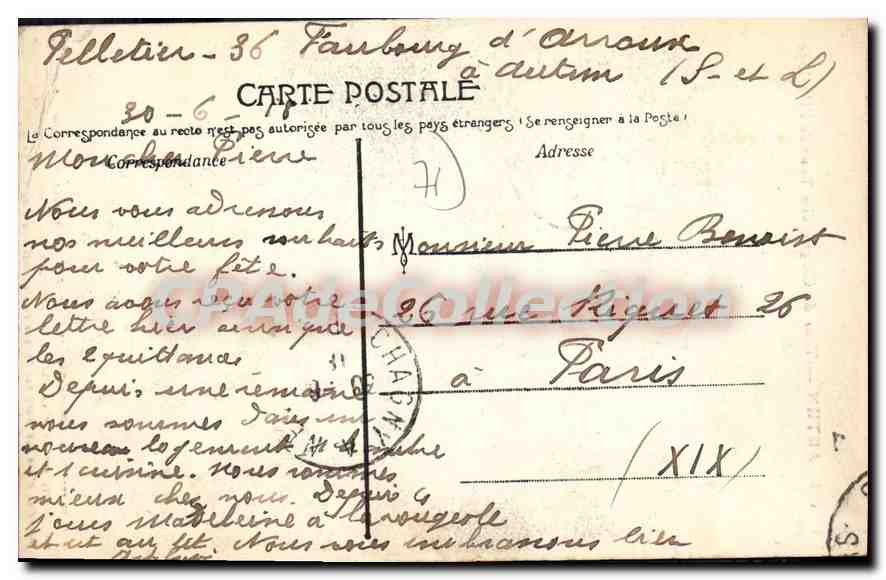 Pelletier - 36 Faubourg d'Arroux
à Autun (S- et L)
CARTE POSTALE
30 - 6 - 18
La Correspondance au recto n'est pas autorisée par tous les pays étrangers (Se renseigner à la Poste)
Mon cher Pierre
Correspondance
Nous vous adressons
nos meilleurs souhaits
pour votre fête.
Nous avons reçu votre
lettre hier ainsi que
les 2 quittances
Depuis une semaine
nous sommes dans un
nouveau logement
et 1 cuisine. Nous sommes
mieux chez nous. Depuis 4
jours Madeleine a la rougeole
et est au lit. Nous vous embrassons bien
Adresse
Monsieur Pierre Benoist
26 rue Riquet 26
à Paris
(XIX)
CHAGNY
CPAdeCollection.com